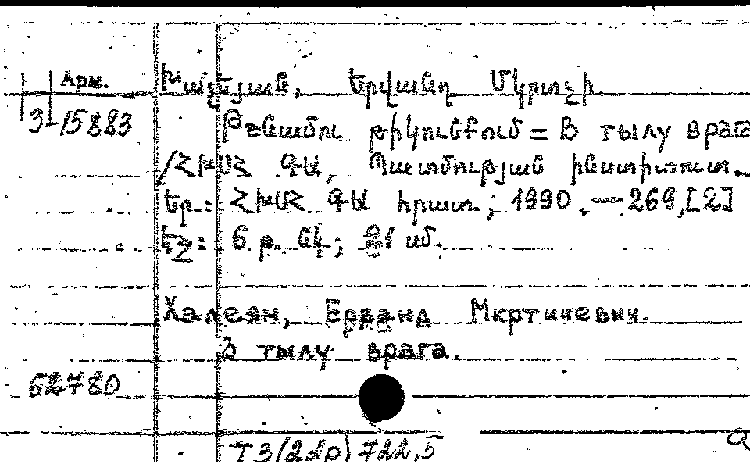 Арм.
Խալեյան, Երվանդ Մկրտչի.
3 15883
Թշնամու թիկունքում = В тылу врага
/ՀԽՍՀ ԳԱ, Պատմության ինստիտուտ.–
Եր.: ՀԽՍՀ ԳԱ հրատ.; 1990.— 269,[2]
էջ: 6 թ. նկ.; 21 սմ.
Халеян, Ерванд Мкртичевич.
В тылу врага.
62780
Т3(22р)722,5